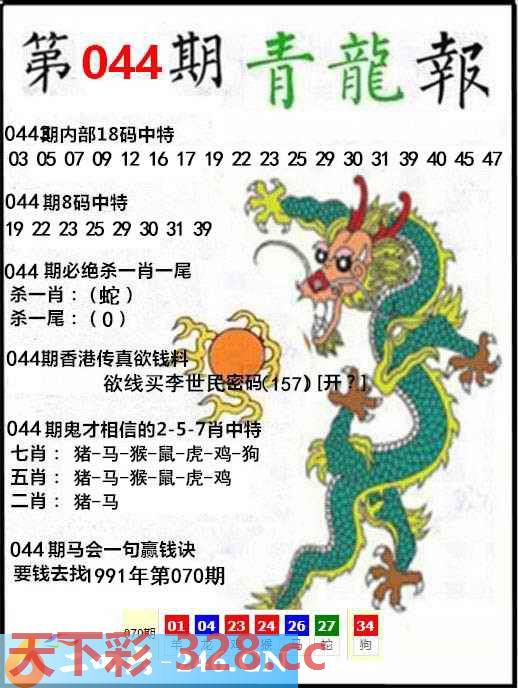 第044期青龍報
044期内部18码中特
03 05 07 09 12 16 17 19 22 23 25 29 30 31 39 40 45 47
044期8码中特
19 22 23 25 29 30 31 39
044 期必绝杀一肖一尾
杀一肖：（蛇）
杀一尾：（0）
044期香港传真欲钱料
欲线买李世民密码(157) [开？]
044期鬼才相信的2-5-7肖中特
七肖：猪-马-猴-鼠-虎-鸡-狗
五肖：猪-马-猴-鼠-虎-鸡
二肖：猪-马
044期马会一句赢钱诀
要钱去找1991年第070期
070期 01 04 23 24 26 27 34
羊 龙 鸡 猴 马 蛇 狗
天下彩-328.cc